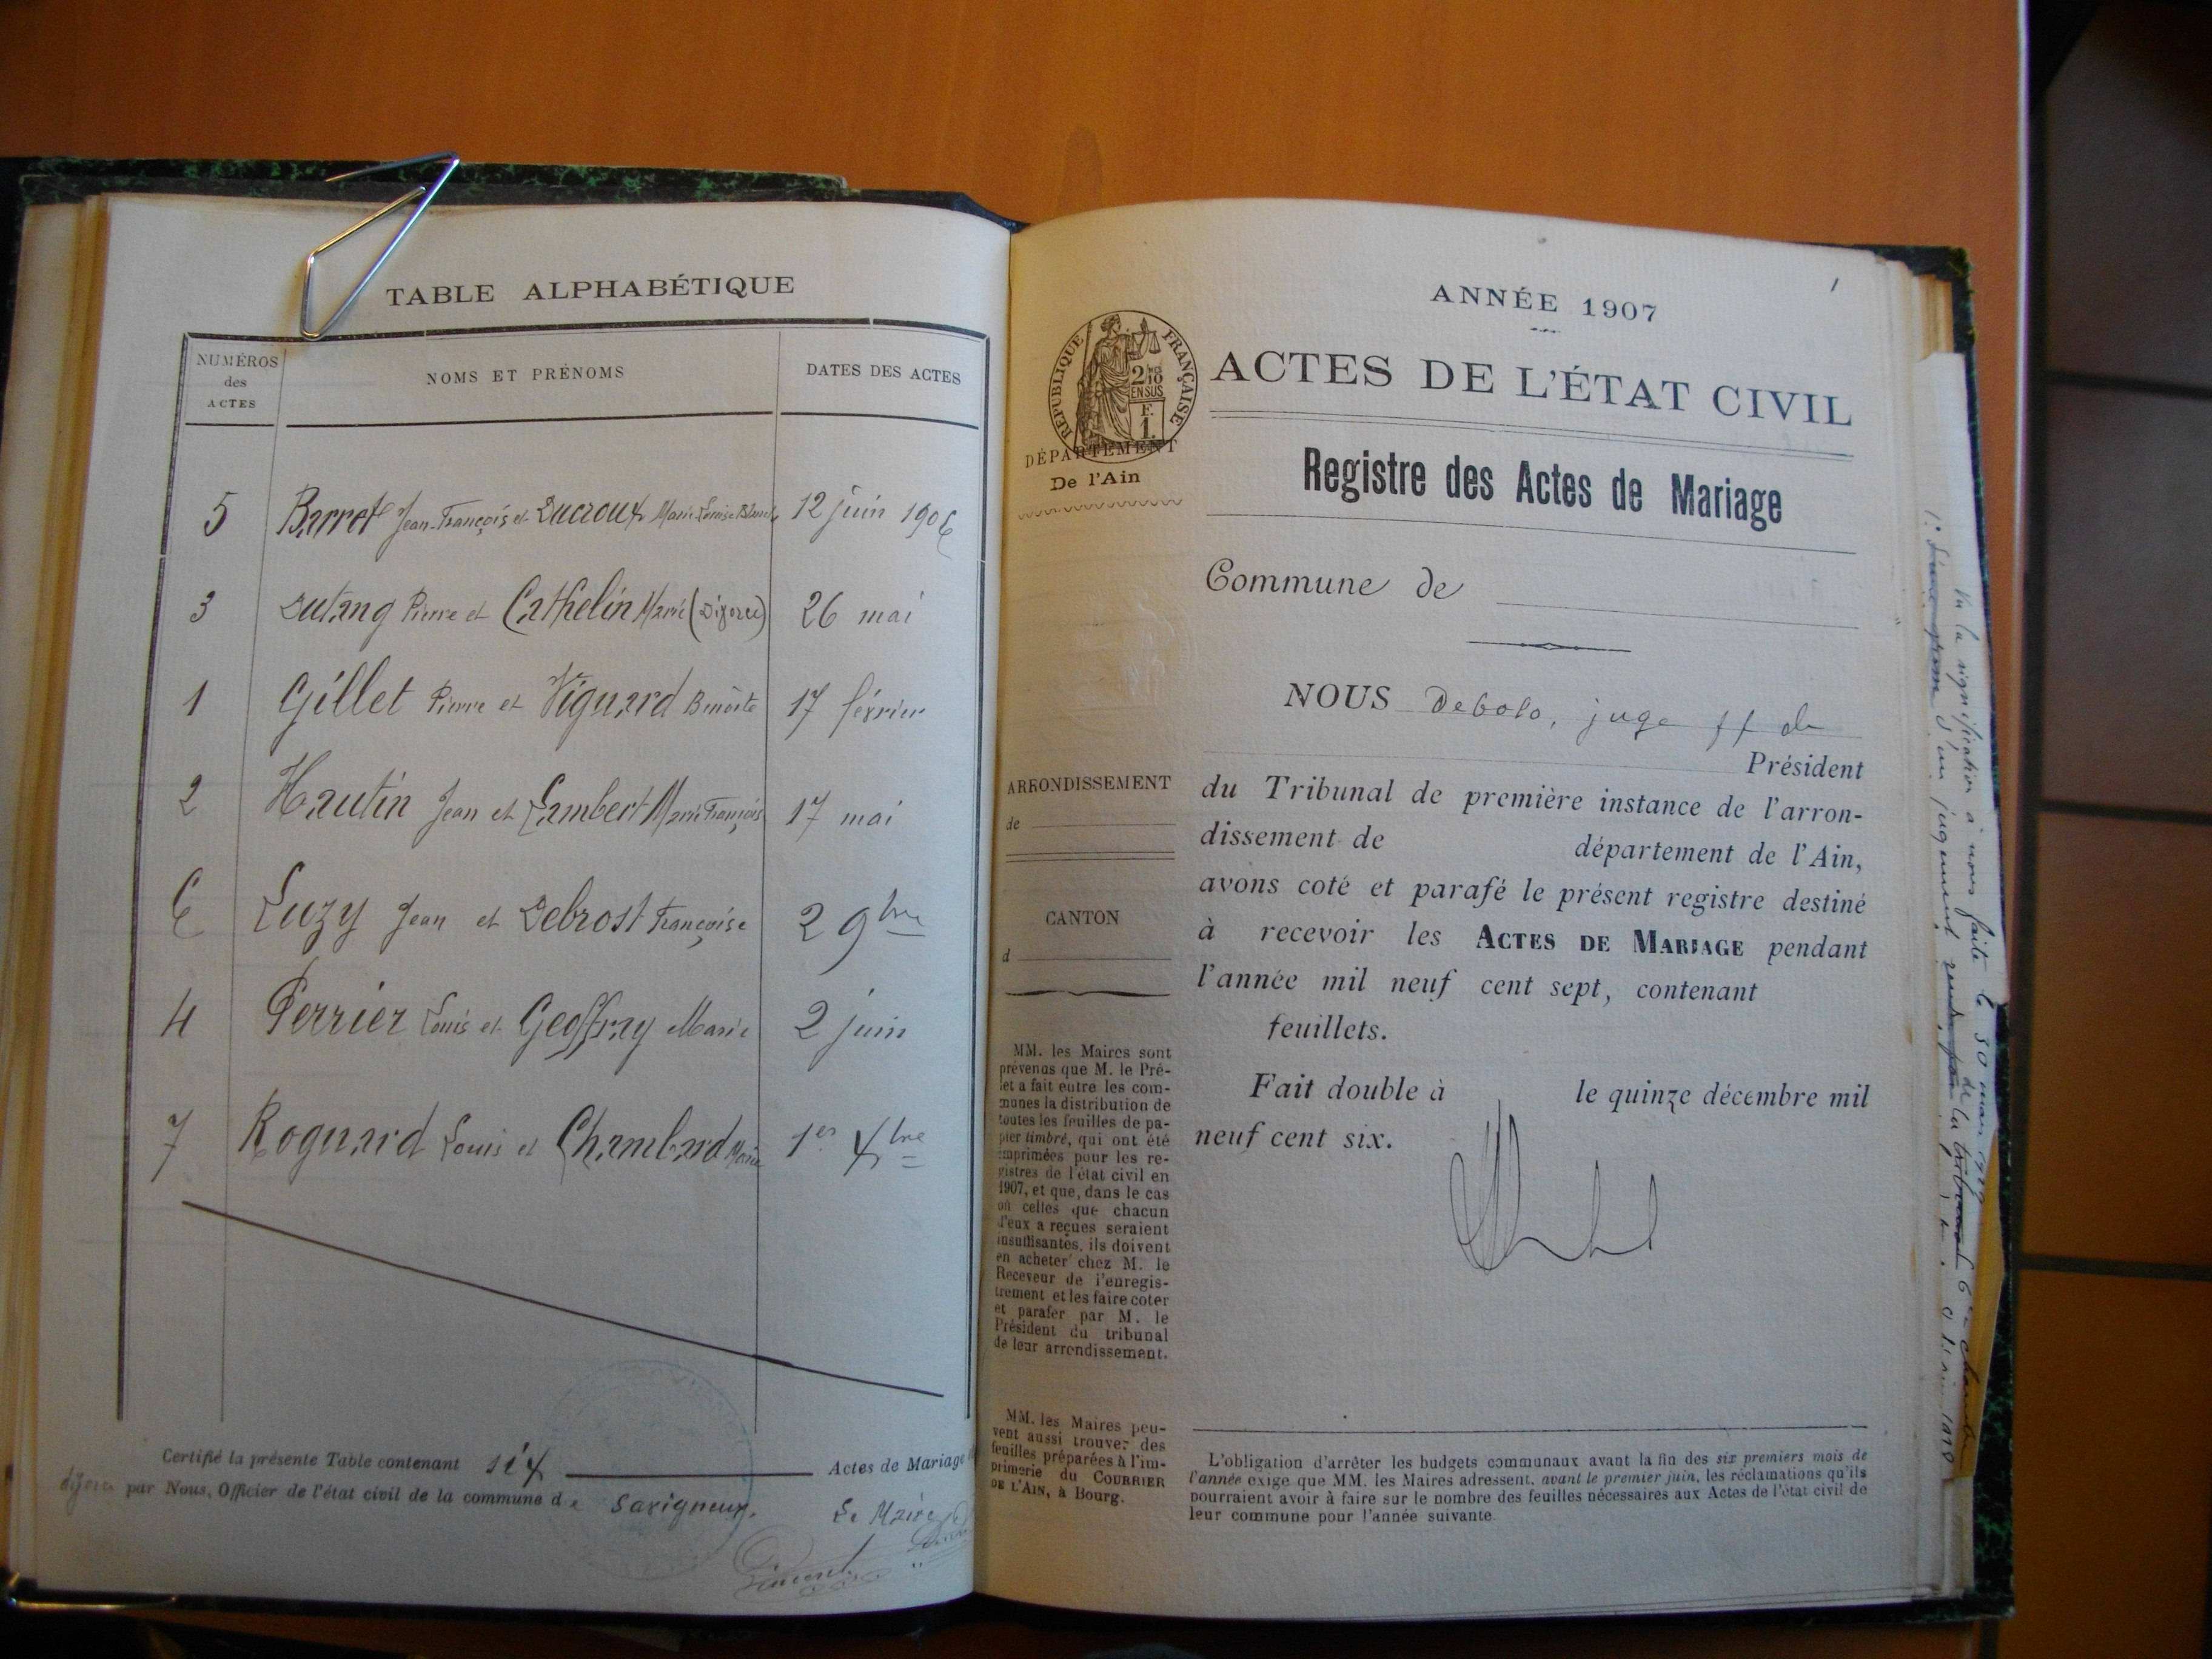 TABLE ALPHABÉTIQUE
NUMÉROS
des
ACTES
NOMS ET PRÉNOMS
DATES DES ACTES
5 Barret Jean-François et Ducroux Marie Louise 12 juin 1906
3 Dutang Pierre et Cathelin Marie (Divorce) 26 mai
1 Gillet Pierre et Viguard Benoite 17 février
2 Hautin Jean et Lambert Marie 17 mai
6 Luzy Jean et Debrost Françoise 2 9bre
4 Perrier Louis et Geoffray Marie 2 juin
7 Rognard Louis et Chambard Marie 1er Xbre
Certifié la présente Table contenant six Actes de Mariage
divorce par Nous, Officier de l'état civil de la commune de Savigneux.
Le Maire
1
ANNÉE 1907
RÉPUBLIQUE FRANÇAISE
2/10
EN SUS
F.
1.
DÉPARTEMENT
De l'Ain
ACTES DE L'ÉTAT CIVIL
Registre des Actes de Mariage
Commune de
NOUS Debolo, juge ff de
Président
du Tribunal de première instance de l'arron-
dissement de département de l'Ain,
avons coté et parafé le présent registre destiné
à recevoir les ACTES DE MARIAGE pendant
l'année mil neuf cent sept, contenant
feuillets.
Fait double à le quinze décembre mil
neuf cent six.
ARRONDISSEMENT
de
CANTON
d
MM. les Maires sont
prévenus que M. le Pré-
fet a fait entre les com-
munes la distribution de
toutes les feuilles de pa-
pier timbré, qui ont été
imprimées pour les re-
gistres de l'état civil en
1907, et que, dans le cas
où celles que chacun
d'eux a reçues seraient
insuffisantes, ils doivent
en acheter chez M. le
Receveur de l'enregis-
trement et les faire coter
et parafer par M. le
Président du tribunal
de leur arrondissement.
MM. les Maires peu-
vent aussi trouver des
feuilles préparées à l'im-
primerie du COURRIER
DE L'AIN, à Bourg.
L'obligation d'arrêter les budgets communaux avant la fin des six premiers mois de
l'année exige que MM. les Maires adressent, avant le premier juin, les réclamations qu'ils
pourraient avoir à faire sur le nombre des feuilles nécessaires aux Actes de l'état civil de
leur commune pour l'année suivante
Vu la signification à nous faite le 30 mars
d'un jugement de la